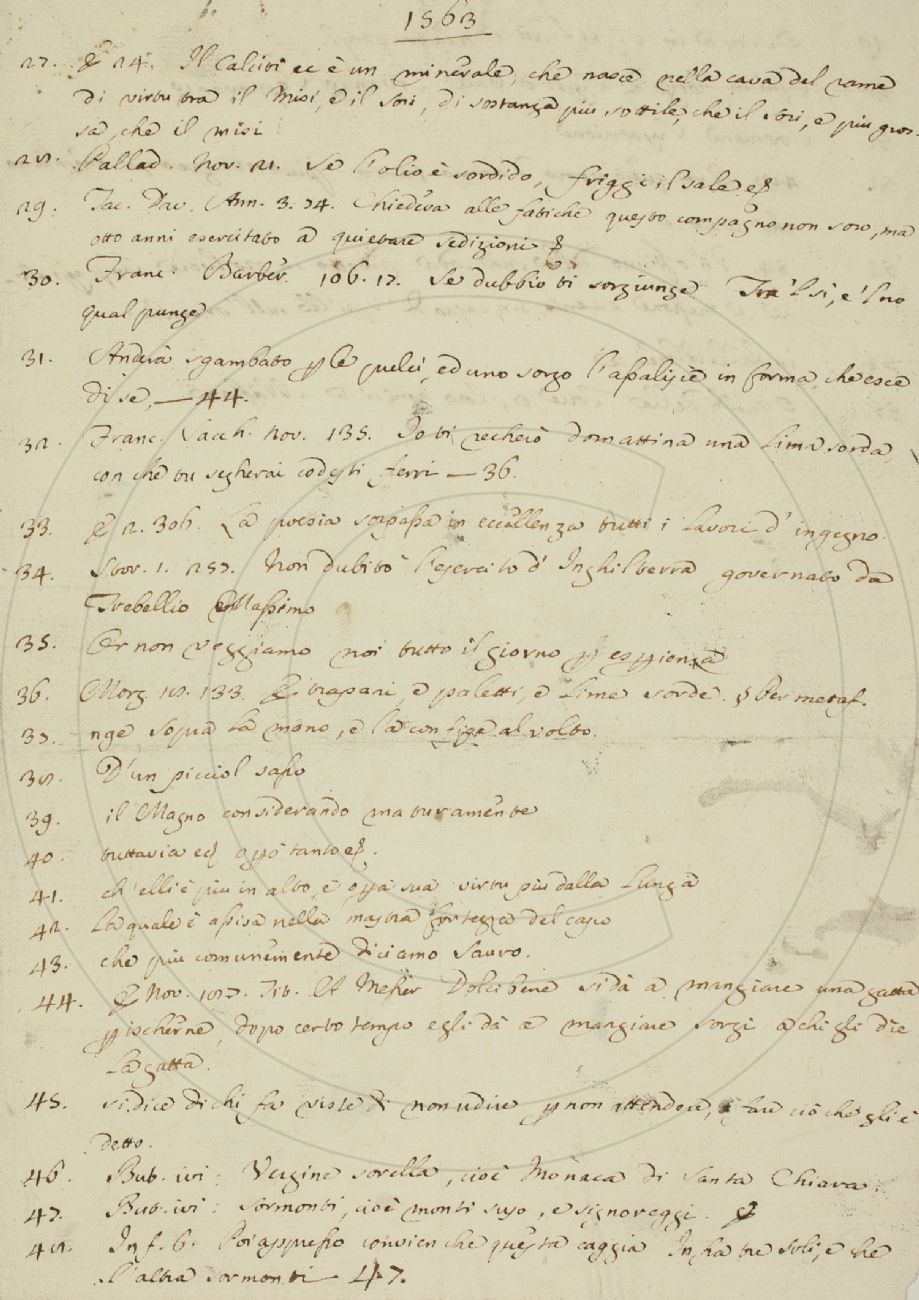 1563
27. & 24. Il Calciti ec è un minerale, che nasce nella cava del rame
di virtù tra il Misi, e il Sori, di sostanza più sottile, che il Sori, e più gros-
sa, che il misi
28. Pallad. Nov. 21. Se l'olio è sordido, friggi il sale
29. Tac. Dav. Ann. 3. 74. Chiedeva alle fatiche questo compagno non soro, ma
otto anni esercitato a quietare sedizioni
30. Franc. Barber. 106. 17. Se dubbio ti sorgiunge Tra 'l si, e 'l no
qual punge
31. Andrà sgambato p le pulci, ed uno sorgo l'assalisce in forma, che esce
di se, — 44.
32. Franc. Sacch. nov. 135. Io ti recherò domattina una lima sorda,
con che tu segherai codesti ferri — 36.
33. & 2. 306. La poesia sorpassa in eccellenza tutti i lavori d'ingegno.
34. Stor. 1. 257. Non dubitò l'esercito d'Inghilterra governato da
Trebellio Massimo
35. Or non veggiamo noi tutto il giorno p esperienza
36. Morg 18. 133. E trapani, e paletti, e lime sorde. § Per metaf.
37. nge sopra la mano, e la confige al volto.
38. D'un picciol sasso
39. il Magno considerando maturamente
40. tuttavia tanto
41. ch'elli è più in alto, e sua virtù più dalla lunga
42. La quale è assisa nella mastra fortezza del capo
43. che più comunemente diciamo Sauro.
44. & Nov. 187. Tit. A Messer Dolcibene si dà a mangiare una gatta
p ischerne, dopo certo tempo egli dà a mangiare sorgi a chi gli diè
la gatta.
45. si dice di chi fa viste di non udire p non attendere, e fare ciò che gli è
detto.
46. But. ivi: Vergine sorella, cioè Monaca di Santa Chiara.
47. But. ivi: Sormonti, cioè monti suso, e signoreggi.
48. Inf. 6. Poi appresso convien che questa caggia Infra tre soli, e che
l'altra sormonti — 47.